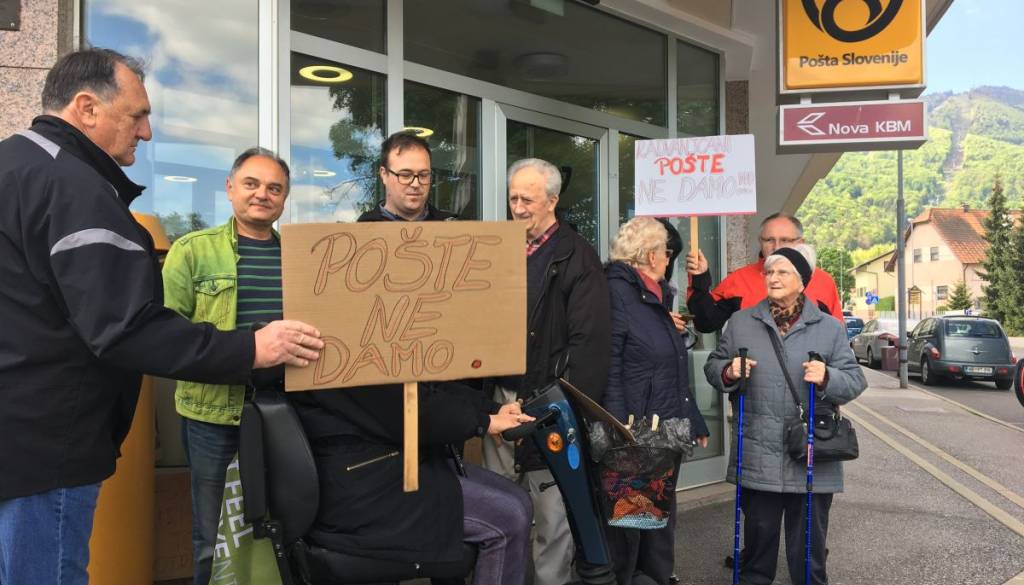 Pošta Slovenije
Nova KBM
RADVANJČANI
POŠTE
NE DAMO!!!
POŠTE
NE
DAMO.
FEEL